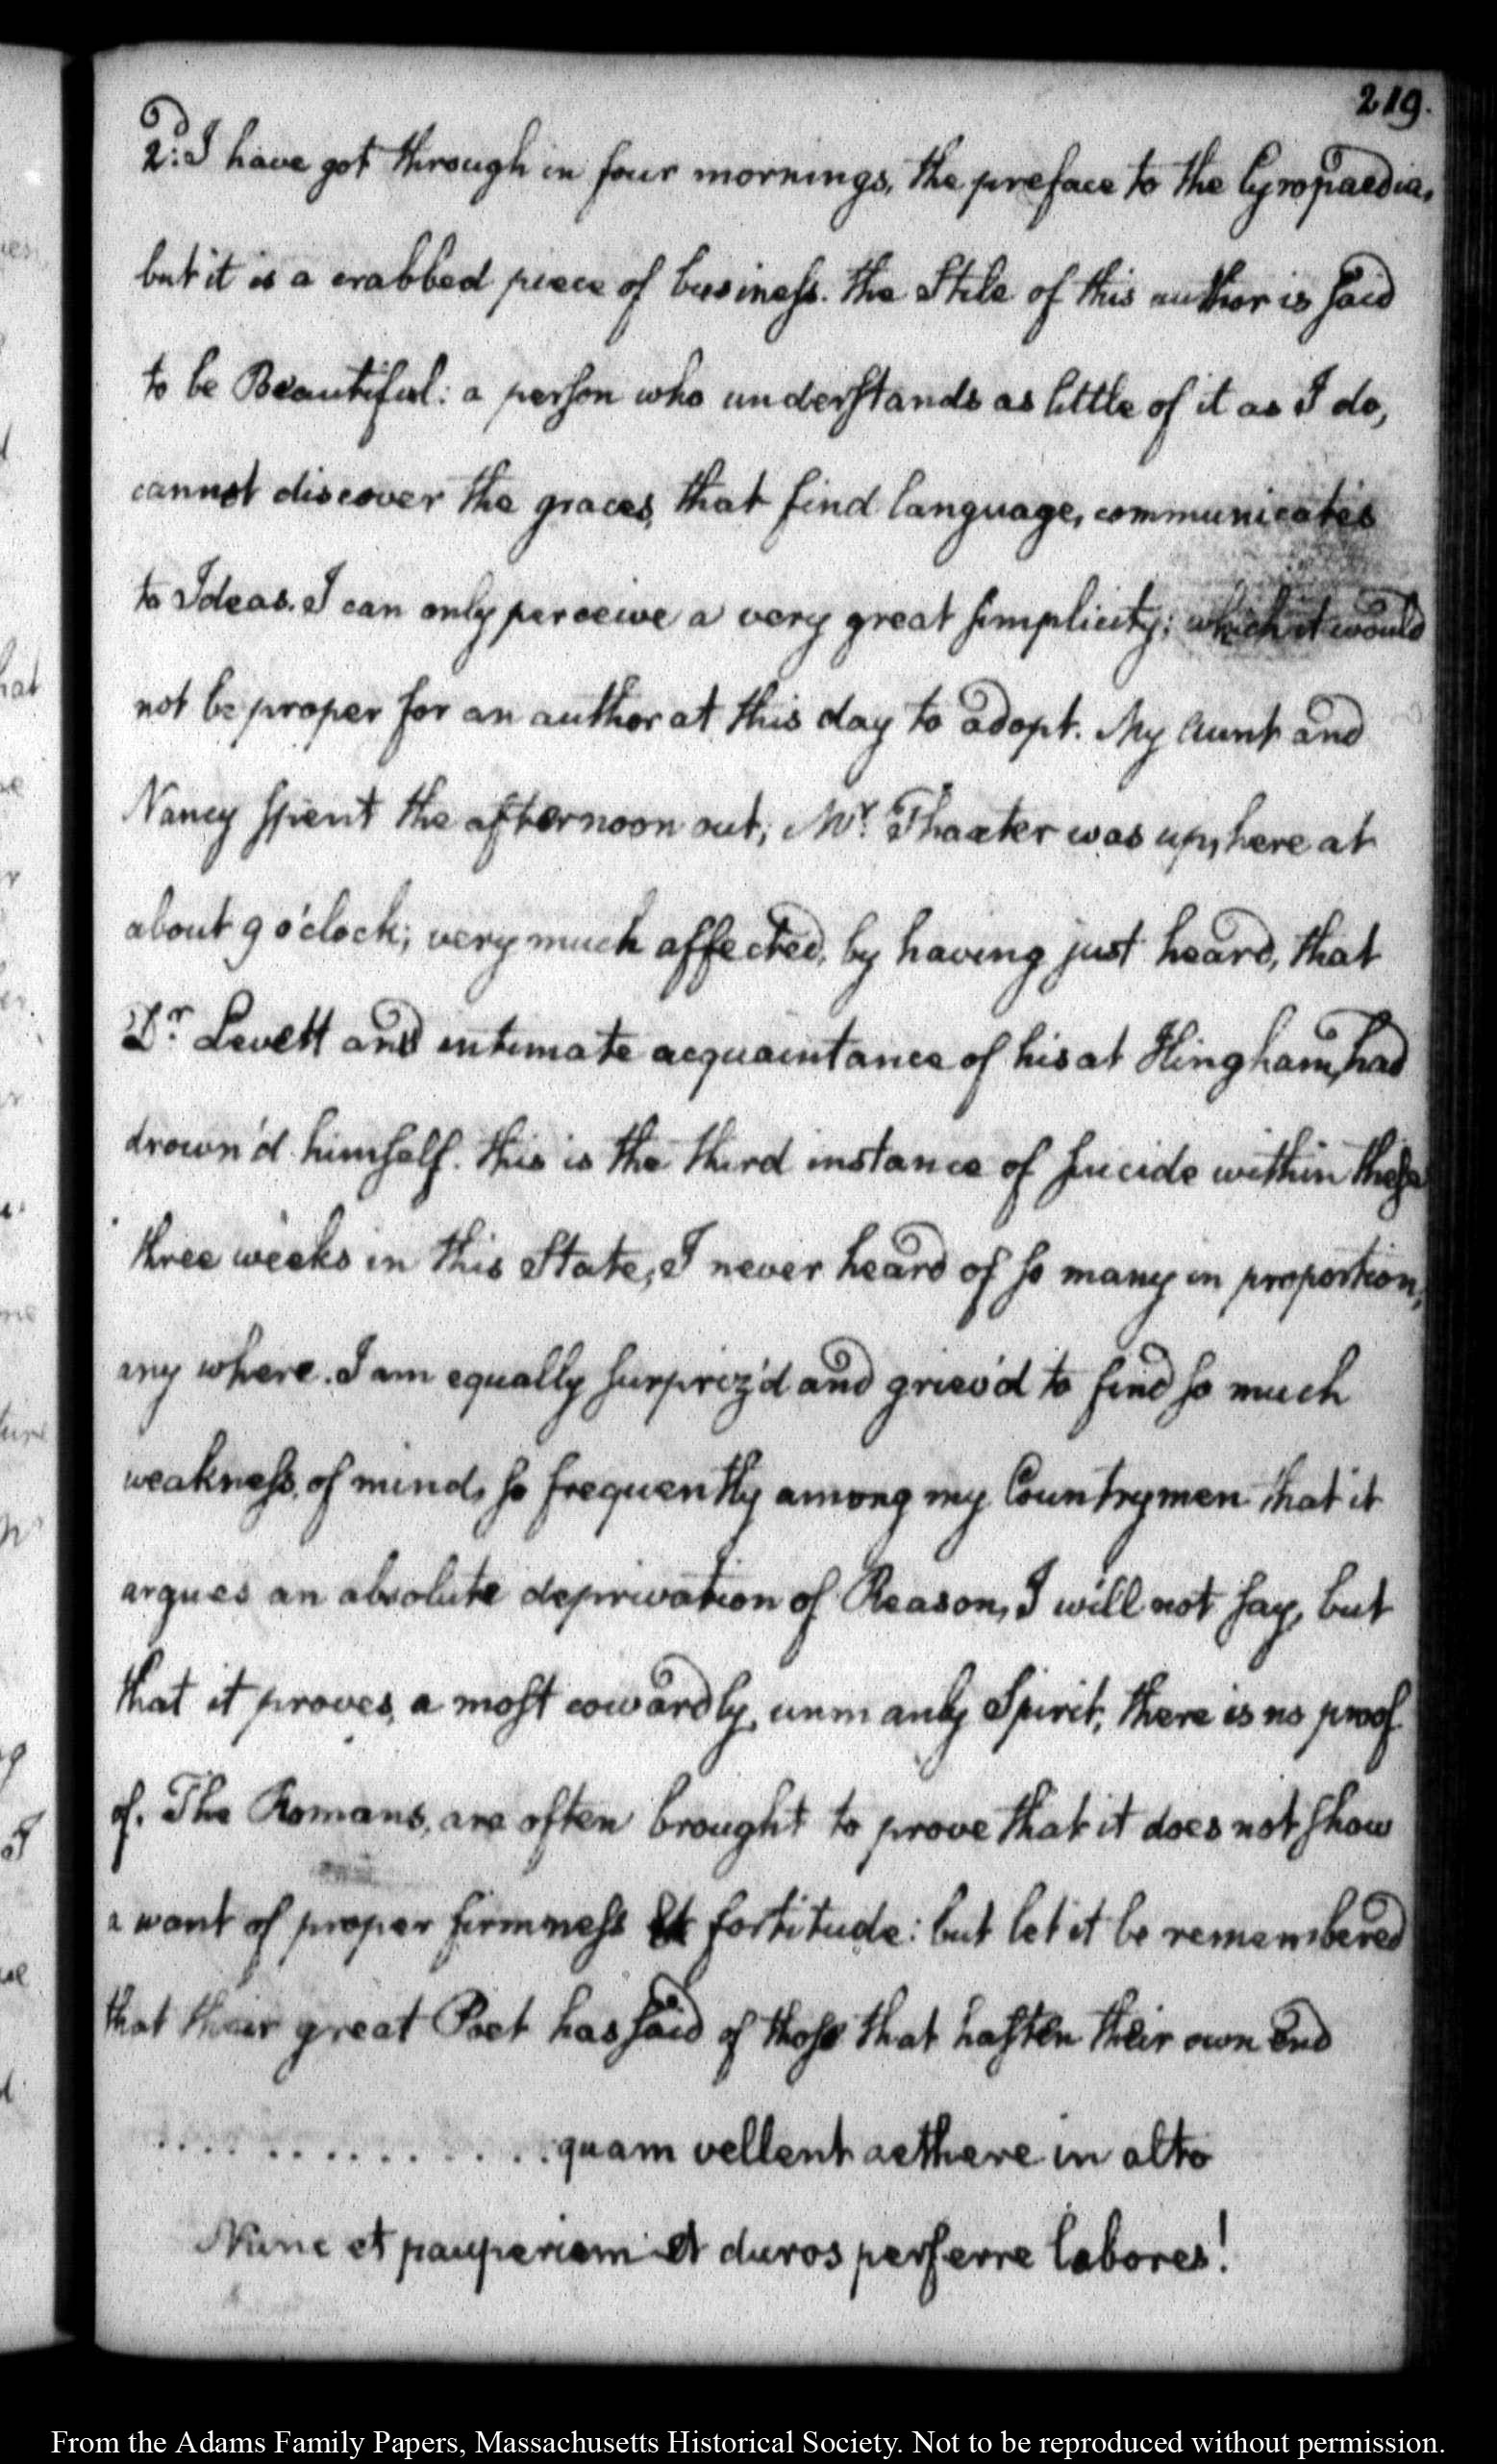 219.
2d: I have got through in four mornings, the preface to the Cyropaedia,
but it is a crabbed piece of business. the Stile of this author is said
to be Beautiful: a person who understands as little of it as I do,
cannot discover the graces, that find language, communicates
to Ideas. I can only perceive a very great simplicity; which it would
not be proper for an author at this day to adopt. My Aunt and
Nancy spent the afternoon out; Mr. Thaxter was up, here at
about 9 o'clock; very much affected, by having just heard, that
Dr Levett and intimate acquaintance of his at Hingham, had
drown'd himself. this is the third instance of suicide within these
three weeks in this State, I never heard of so many in proportion,
any where. I am equally surpriz'd and griev'd to find so much
weakness, of mind, so frequently among my Countrymen that it
argues an absolute deprivation of Reason, I will not say, but
that it proves, a most cowardly, unmanly Spirit, there is no proof
of. The Romans, are often brought to prove that it does not show
a want of proper firmness & fortitude: but let it be remembered
that their great Poet has said of those that hasten their own end
. . . . . . . . . . . . . . quam vellent aethere in alto
Nunc et pauperiem et duros perferre labores!
From the Adams Family Papers, Massachusetts Historical Society. Not to be reproduced without permission.